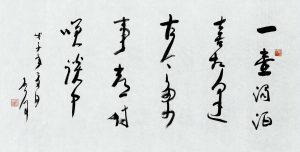 一壶浊酒
喜相逢
古今多少
事都付
咲谈中